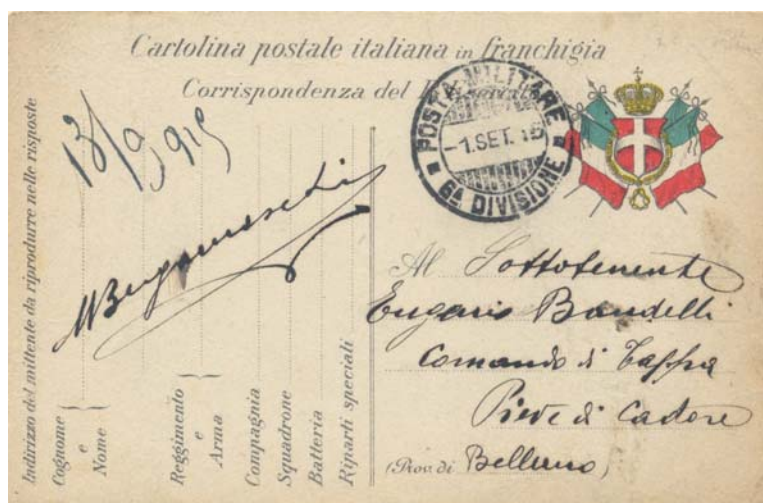 Cartolina postale italiana in franchigia
Corrispondenza del
POSTA MILITARE
-1.SET.15
6ª DIVISIONE
Indirizzo del mittente da riprodurre nelle risposte
Cognome e Nome
Reggimento e Arma
Compagnia
Squadrone
Batteria
Riparti speciali
13/9/915
Al Sottotenente
Eugenio Bandelli
Comando di Tappa
Pieve di Cadore
(Prov. di Belluno)